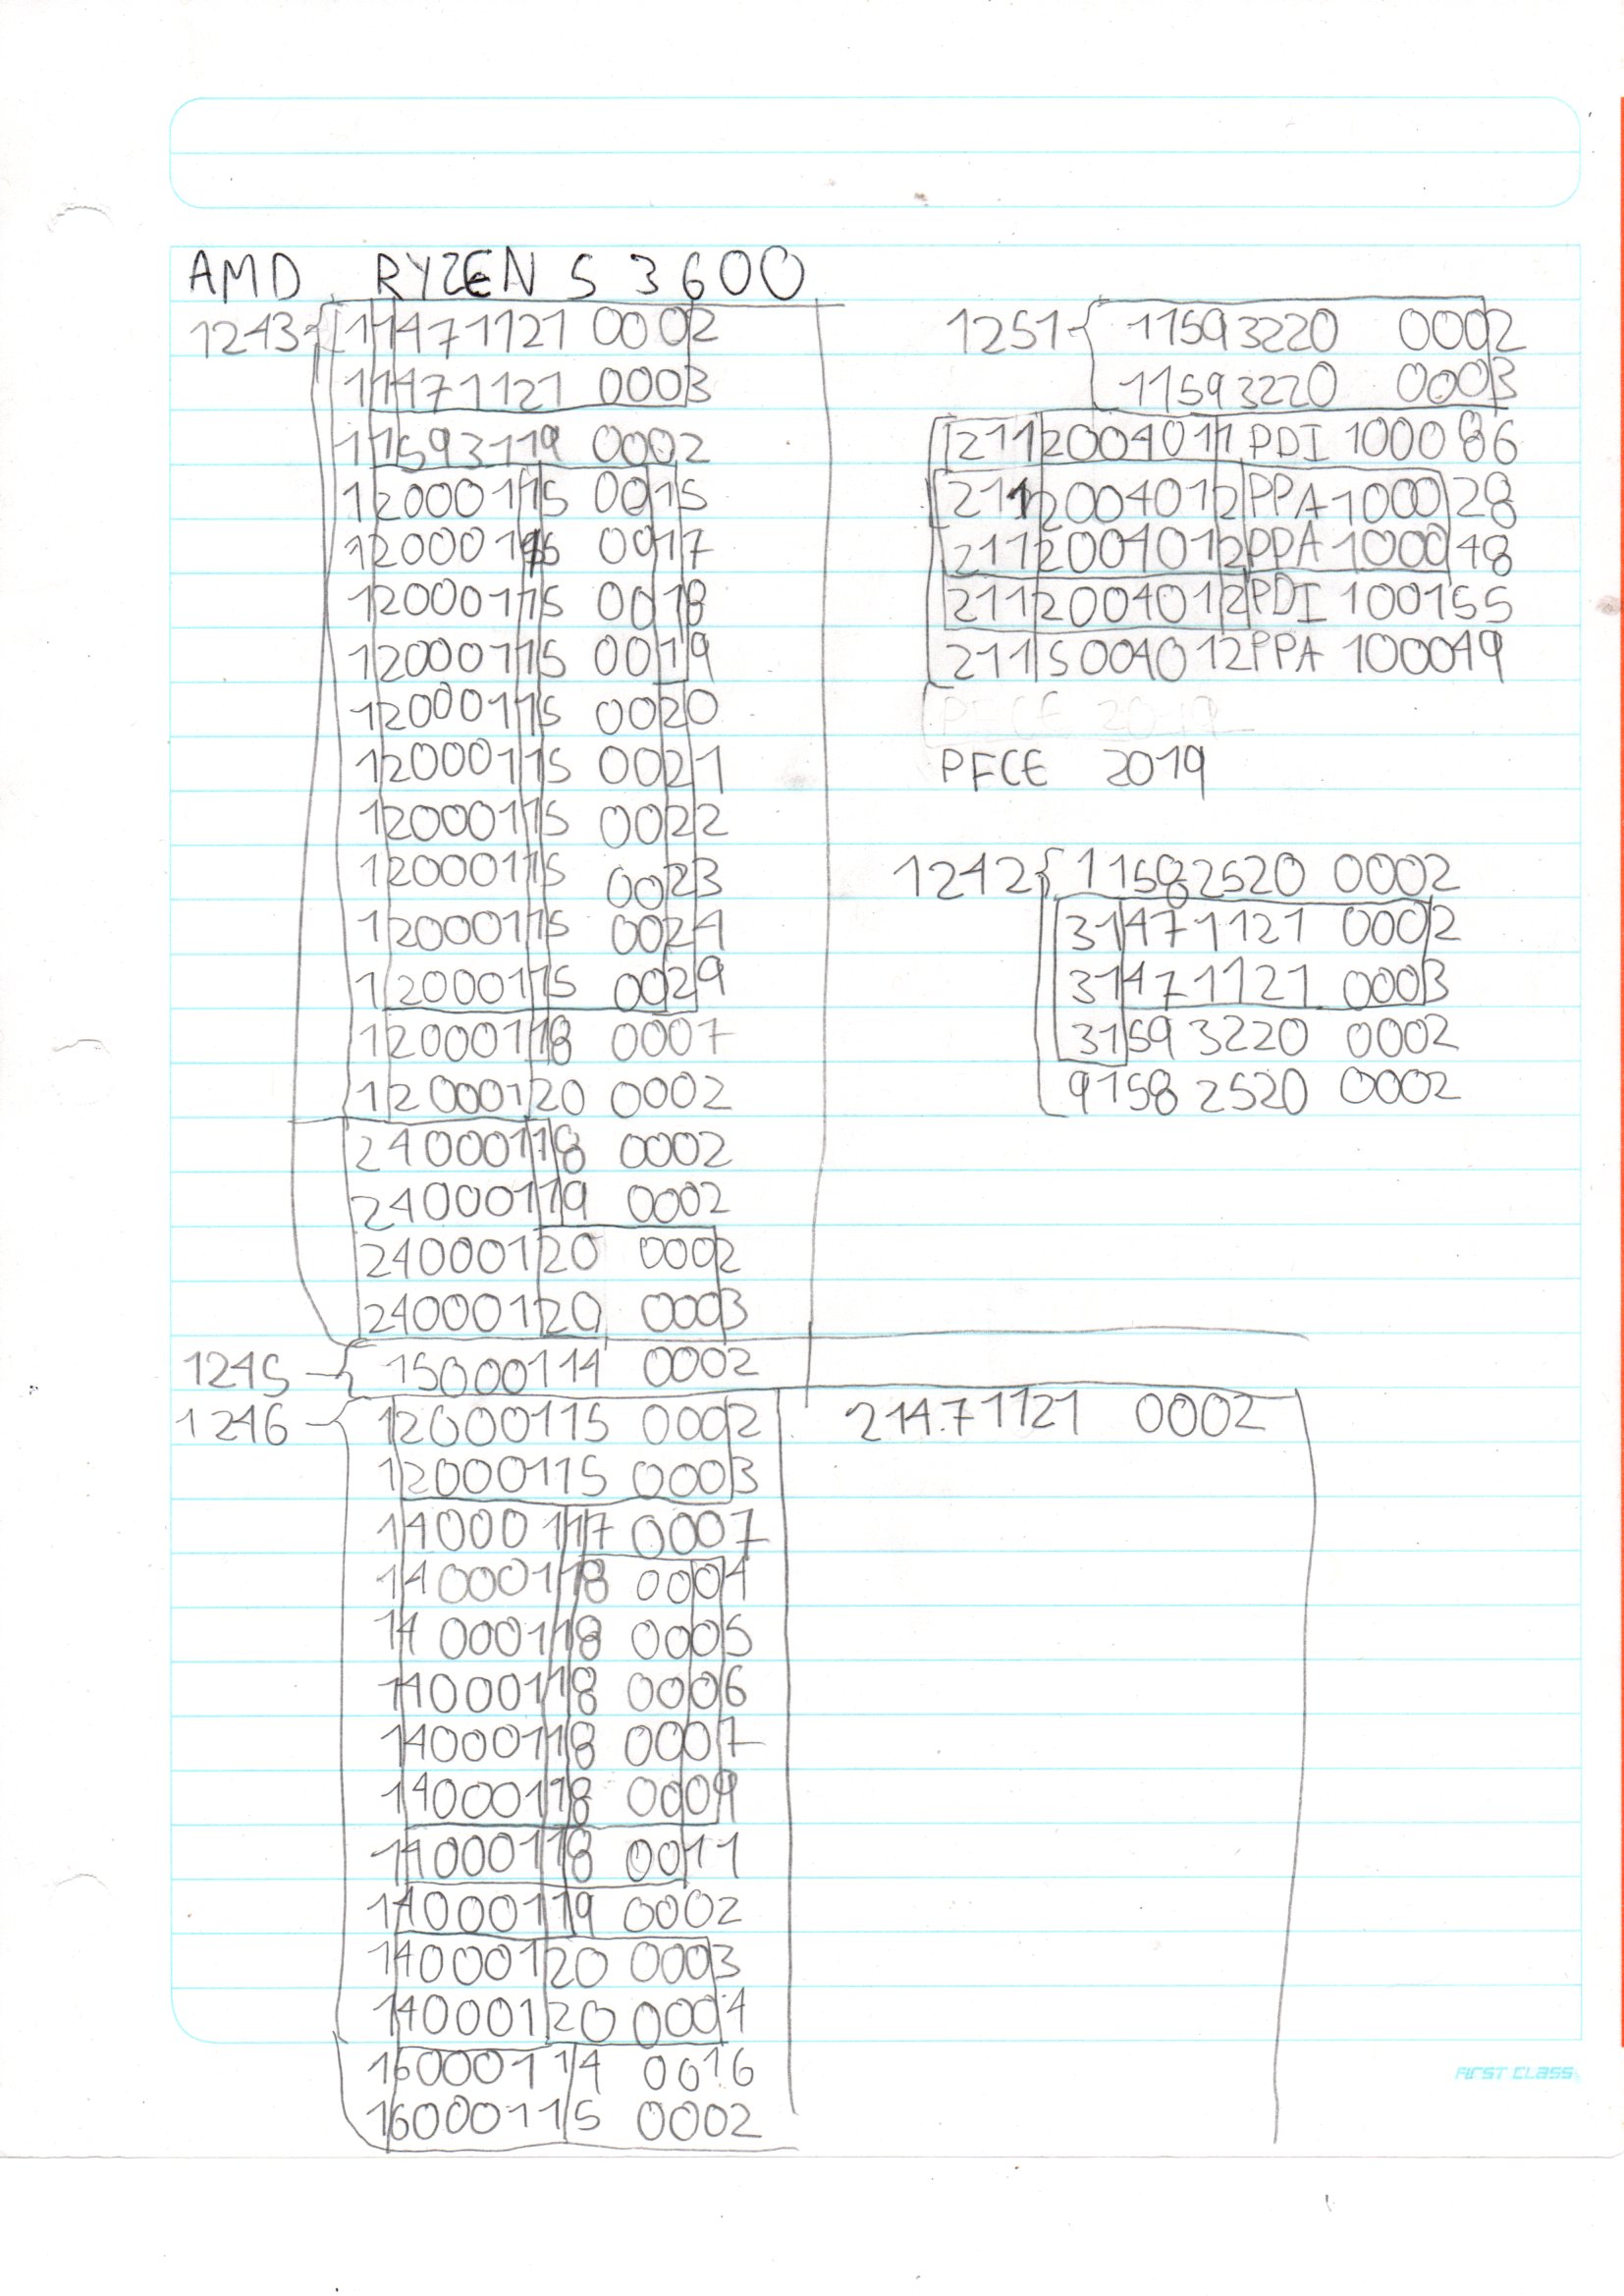 AMD RYZEN 5 3600
1243 11471121 0002
11471121 0003
11593119 0002
12000115 0015
12000115 0017
12000115 0018
12000115 0019
12000115 0020
12000115 0021
12000115 0022
12000115 0023
12000115 0024
12000115 0029
12000118 0007
12000120 0002
24000118 0002
24000119 0002
24000120 0002
24000120 0003
1245 15000114 0002
1246 12000115 0002
12000115 0003
14000117 0007
14000118 0004
14000118 0005
14000118 0006
14000118 0007
14000118 0009
14000118 0011
14000119 0002
14000120 0003
14000120 0004
16000114 0016
16000115 0002
21471121 0002
1251 11593220 0002
11593220 0003
2112004011 PDI 100086
2112004012 PPA 100028
2112004012 PPA 100048
2112004012 PDI 100155
2115004012 PPA 100049
PFCE 2019
PFCE 2019
1242 11582520 0002
31471121 0002
31471121 0003
31593220 0002
91582520 0002
FIRST CLASS